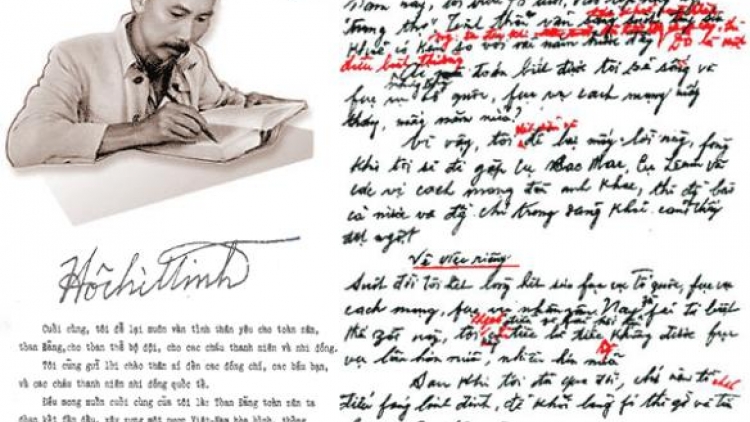 HồChíMinh
Cuối cùng, tôi để lại muôn vàn tình thân yêu cho toàn dân,
toàn Đảng,cho toàn thể bộ đội, cho các cháu thanh niên và nhi đồng.
Tôi cũng gửi lời chào thân ái đến các đồng chí, các bầu bạn,
và các cháu thanh niên nhi đồng quốc tế.
Điều mong muốn cuối cùng của tôi là: Toàn Đảng toàn dân ta
đoàn kết phấn đấu, xây dựng một nước Việt-Nam hòa bình, thống
Năm nay, tôi vừa
"trung thọ" Tinh thần vẫn sáng suốt
khỏe có kém so với vài năm trước đây Đó là một
điều bình thường
Ai mà đoán biết được tôi sẽ sống và
fục vụ tổ quốc, fục vụ cách mạng mấy
tháng, mấy năm nữa?
Vì vậy, tôi để lại mấy lời này, fòng
khi tôi sẽ đi gặp cụ Các Mác, cụ Lênin và
các vị cách mạng đàn anh khác, thì đồng bào
cả nước và đồng chí trong Đảng khỏi cảm thấy
đột ngột
Về việc riêng
Suốt đời tôi hết lòng hết sức fục vụ tổ quốc, fục vụ
cách mạng, fục vụ nhân dân. Nay fải từ biệt
thế zới này, tôi điều zì fải hối hận, chỉ tiếc là tiếc không được fục
vụ lâu hơn nữa, nhiều hơn nữa
Sau khi tôi đã qua đời, chớ nên tổ chức
điếu fúng linh đình, để khỏi lãng fí thì zờ và tiền